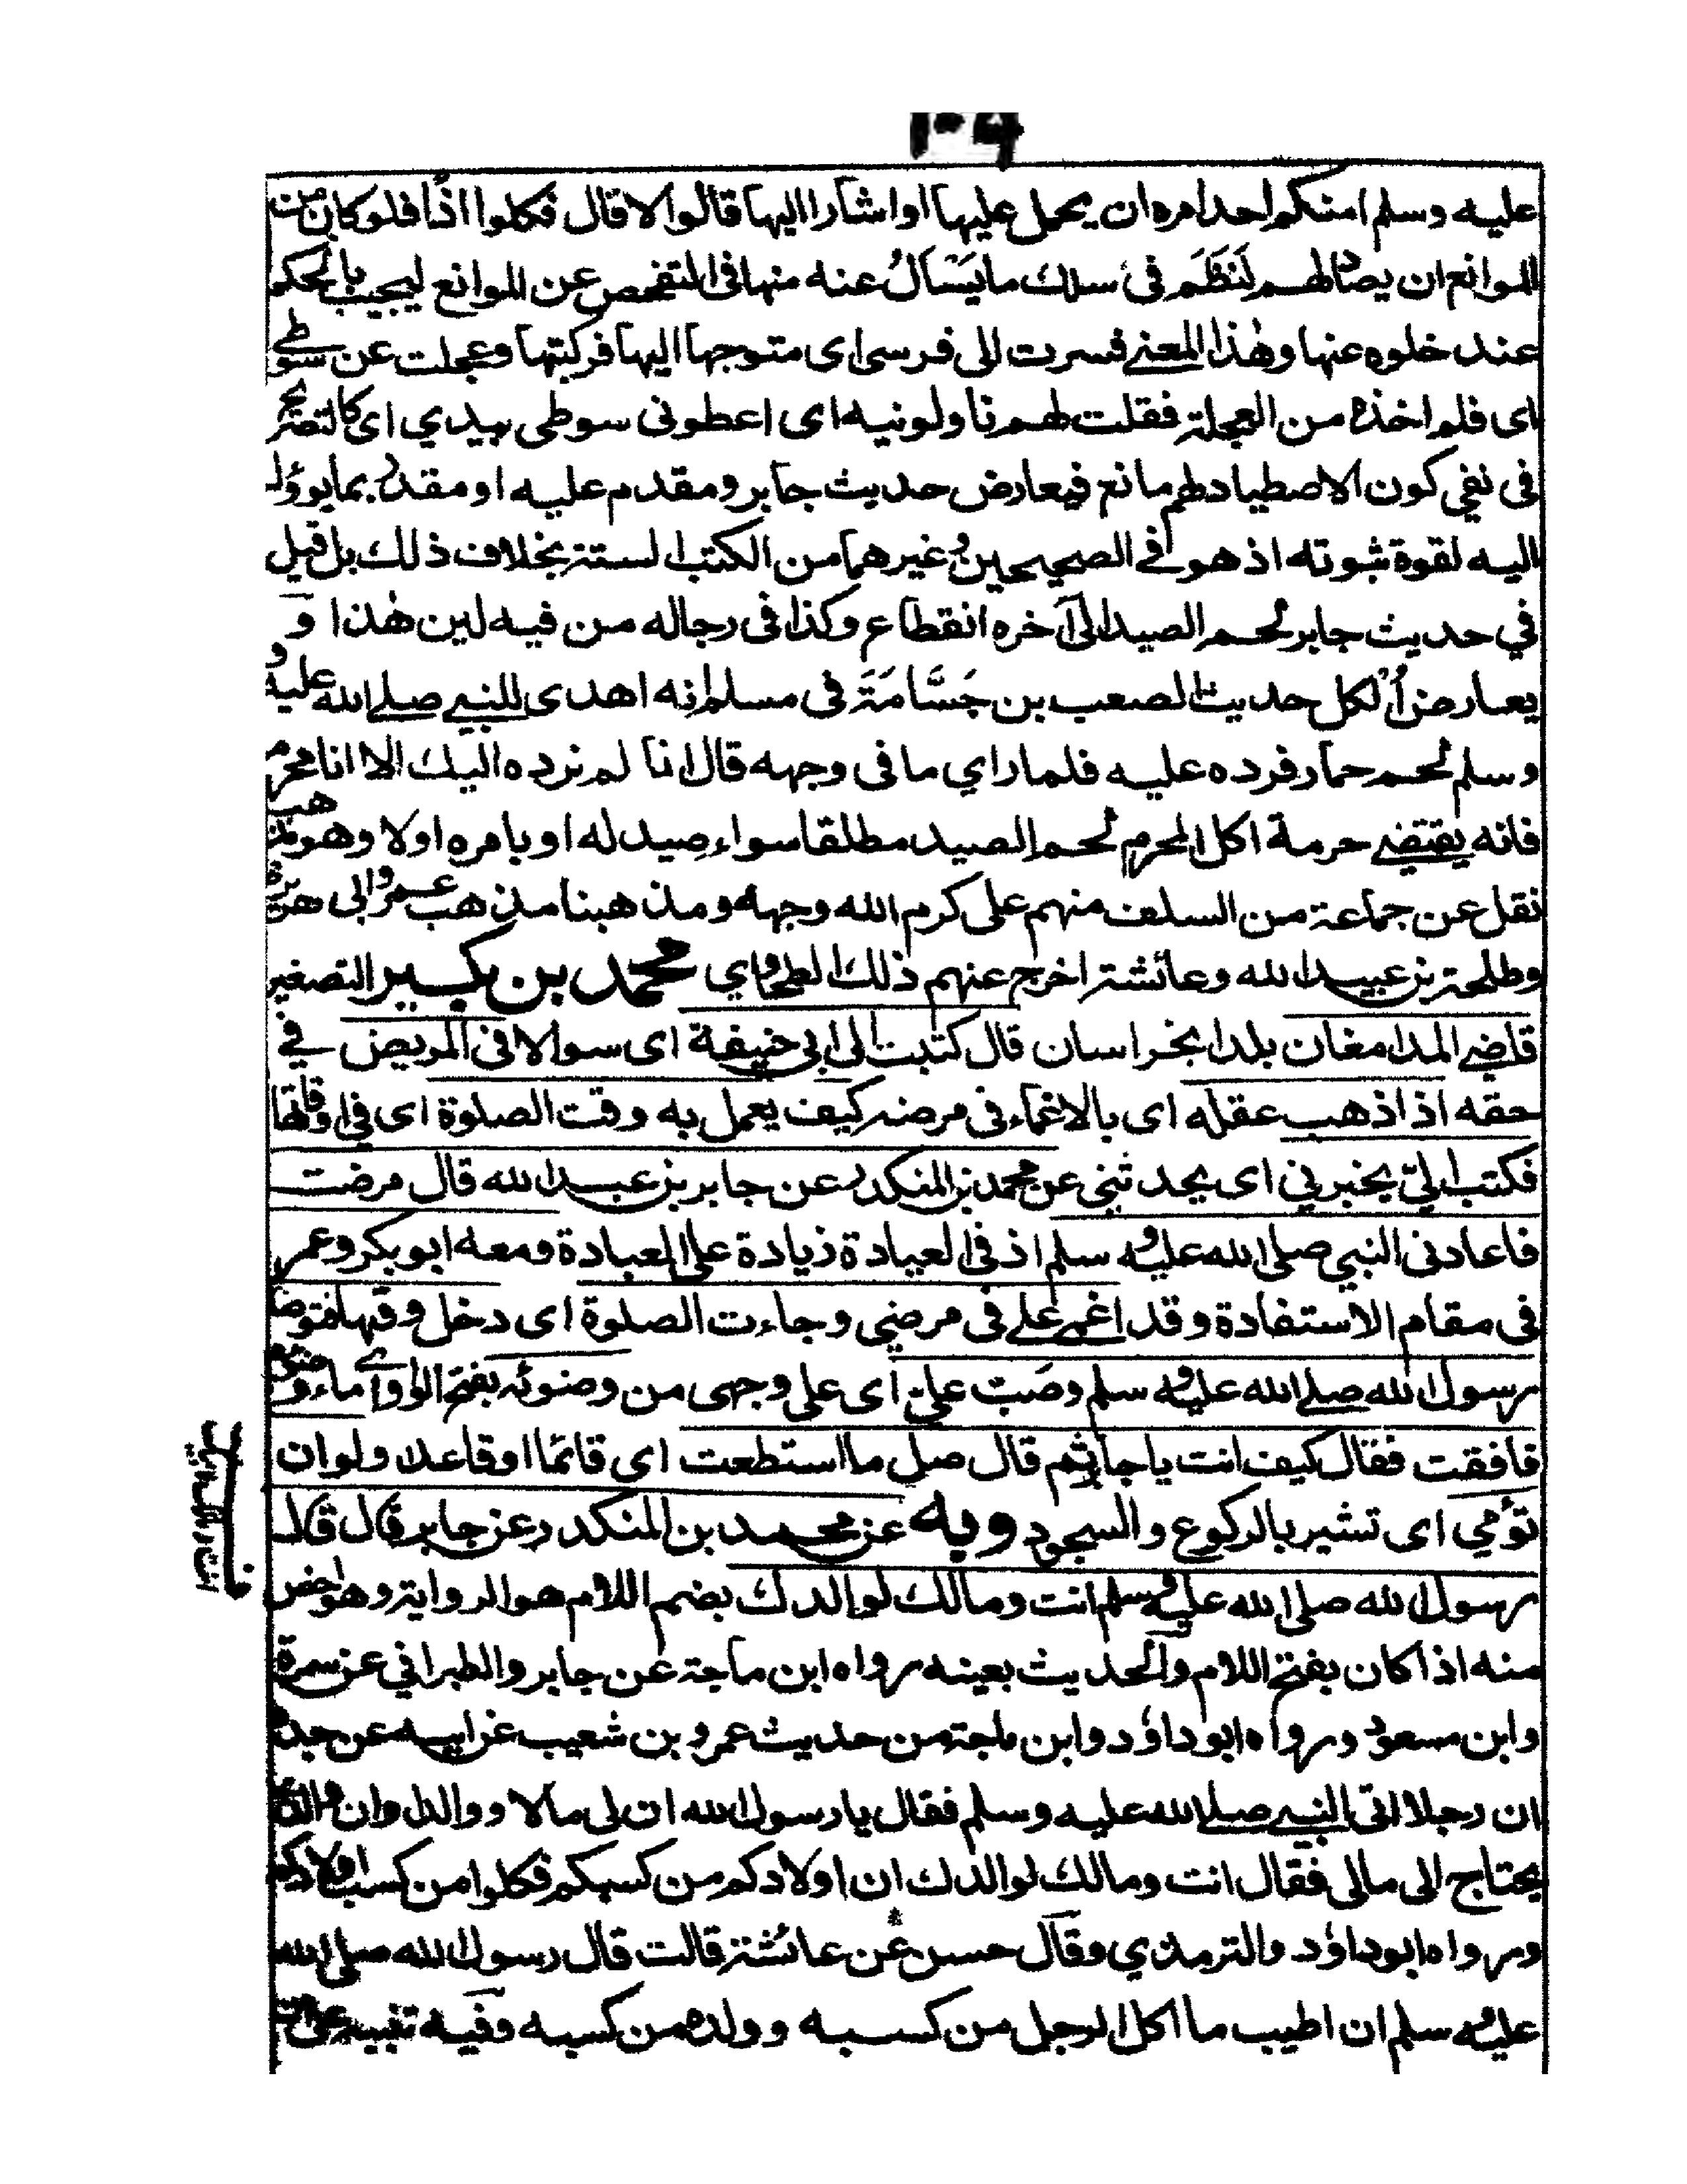 عليه وسلم امنكم احد امره ان يحمل عليها او اشار اليها قالوا لا قال فكلوا اذًا فلو كان من
الموانع ان يصاد لهم لَنَظَمَ فى سلك ما يَسْأَلُ عنه منها فى التفحص عن الموانع ليجيب بالحكم
عند خلوه عنها وهذا المعنى فسرت الى فرسى اى متوجها اليها فركبتها وعجلت عن سوطى
اى فلم اخذه من العجلة فقلت لهم ناولونيه اى اعطونى سوطى بيدي اى كالتصريح
فى نفي كون الاصطياد لهم مانع فيعارض حديث جابر ومقدم عليه او مقدر بما يوؤل
اليه لقوة ثبوته اذ هو في الصحيحين وغيرهما من الكتب الستة بخلاف ذلك بل قيل
في حديث جابر لحم الصيد الى آخره انقطاع وكذا فى رجاله من فيه لين هذا و
يعارض الكل حديث الصعب بن جَسَّامَةَ فى مسلم انه اهدى للنبي صلى الله عليه و
وسلم لحم حمار فرده عليه فلما راي ما فى وجهه قال انا لم نرده اليك الا انا محرم
فانه يقتضي حرمة اكل المحرم لحم الصيد مطلقا سواء صيد له او بامره اولا وهو مذهب
نقل عن جماعة من السلف منهم على كرم الله وجهه ومذهبنا مذهب عمر وابى هريرة
وطلحة بن عبيد الله وعائشة اخرج عنهم ذلك الطحاوي محمد بن بكير التصغير
قاضي الدامغان بلد بخراسان قال كتبت الى ابى حنيفة اى سوالا فى المريض في
حقه اذا ذهب عقله اى بالاغماء فى مرضه كيف يعمل به وقت الصلوة اى في اوقاتها
فكتب اليّ يخبرني اى يحدثنى عن محمد بن المنكدر عن جابر بن عبد الله قال مرضت
فاعادنى النبي صلى الله عليه وسلم اذ فى العيادة زيادة على العبادة ومعه ابو بكر وعمر
فى مقام الاستفادة وقد اغمى على فى مرضي وجاءت الصلوة اى دخل وقتها فتوضأ
رسول الله صلى الله عليه وسلم وصَبّ عليّ اى على وجهى من وضوئه بفتح الواو اى ماء وضوئه
فافقت فقال كيف انت يا جابر ثم قال صل ما استطعت اى قائما او قاعدا ولو ان
تؤمي اى تشير بالركوع والسجود وبه عن محمد بن المنكدر عن جابر قال قال
رسول الله صلى الله عليه وسلم انت ومالك لوالدك بضم اللام هو الرواية وهو اخص
منه اذا كان بفتح اللام والحديث بعينه رواه ابن ماجة عن جابر والطبراني عن سمرة
وابن مسعود ورواه ابو داؤد وابن ماجة من حديث عمرو بن شعيب عن ابيه عن جده
ان رجلا اتى النبي صلى الله عليه وسلم فقال يا رسول الله ان لى مالا ووالدا وان والدى
يحتاج الى مالى فقال انت ومالك لوالدك ان اولادكم من كسبكم فكلوا من كسب اولادكم
ورواه ابو داؤد والترمذي وقال حسن عن عائشة قالت قال رسول الله صلى الله
عليه وسلم ان اطيب ما اكل الرجل من كسبه وولده من كسبه وفيه تنبيه على